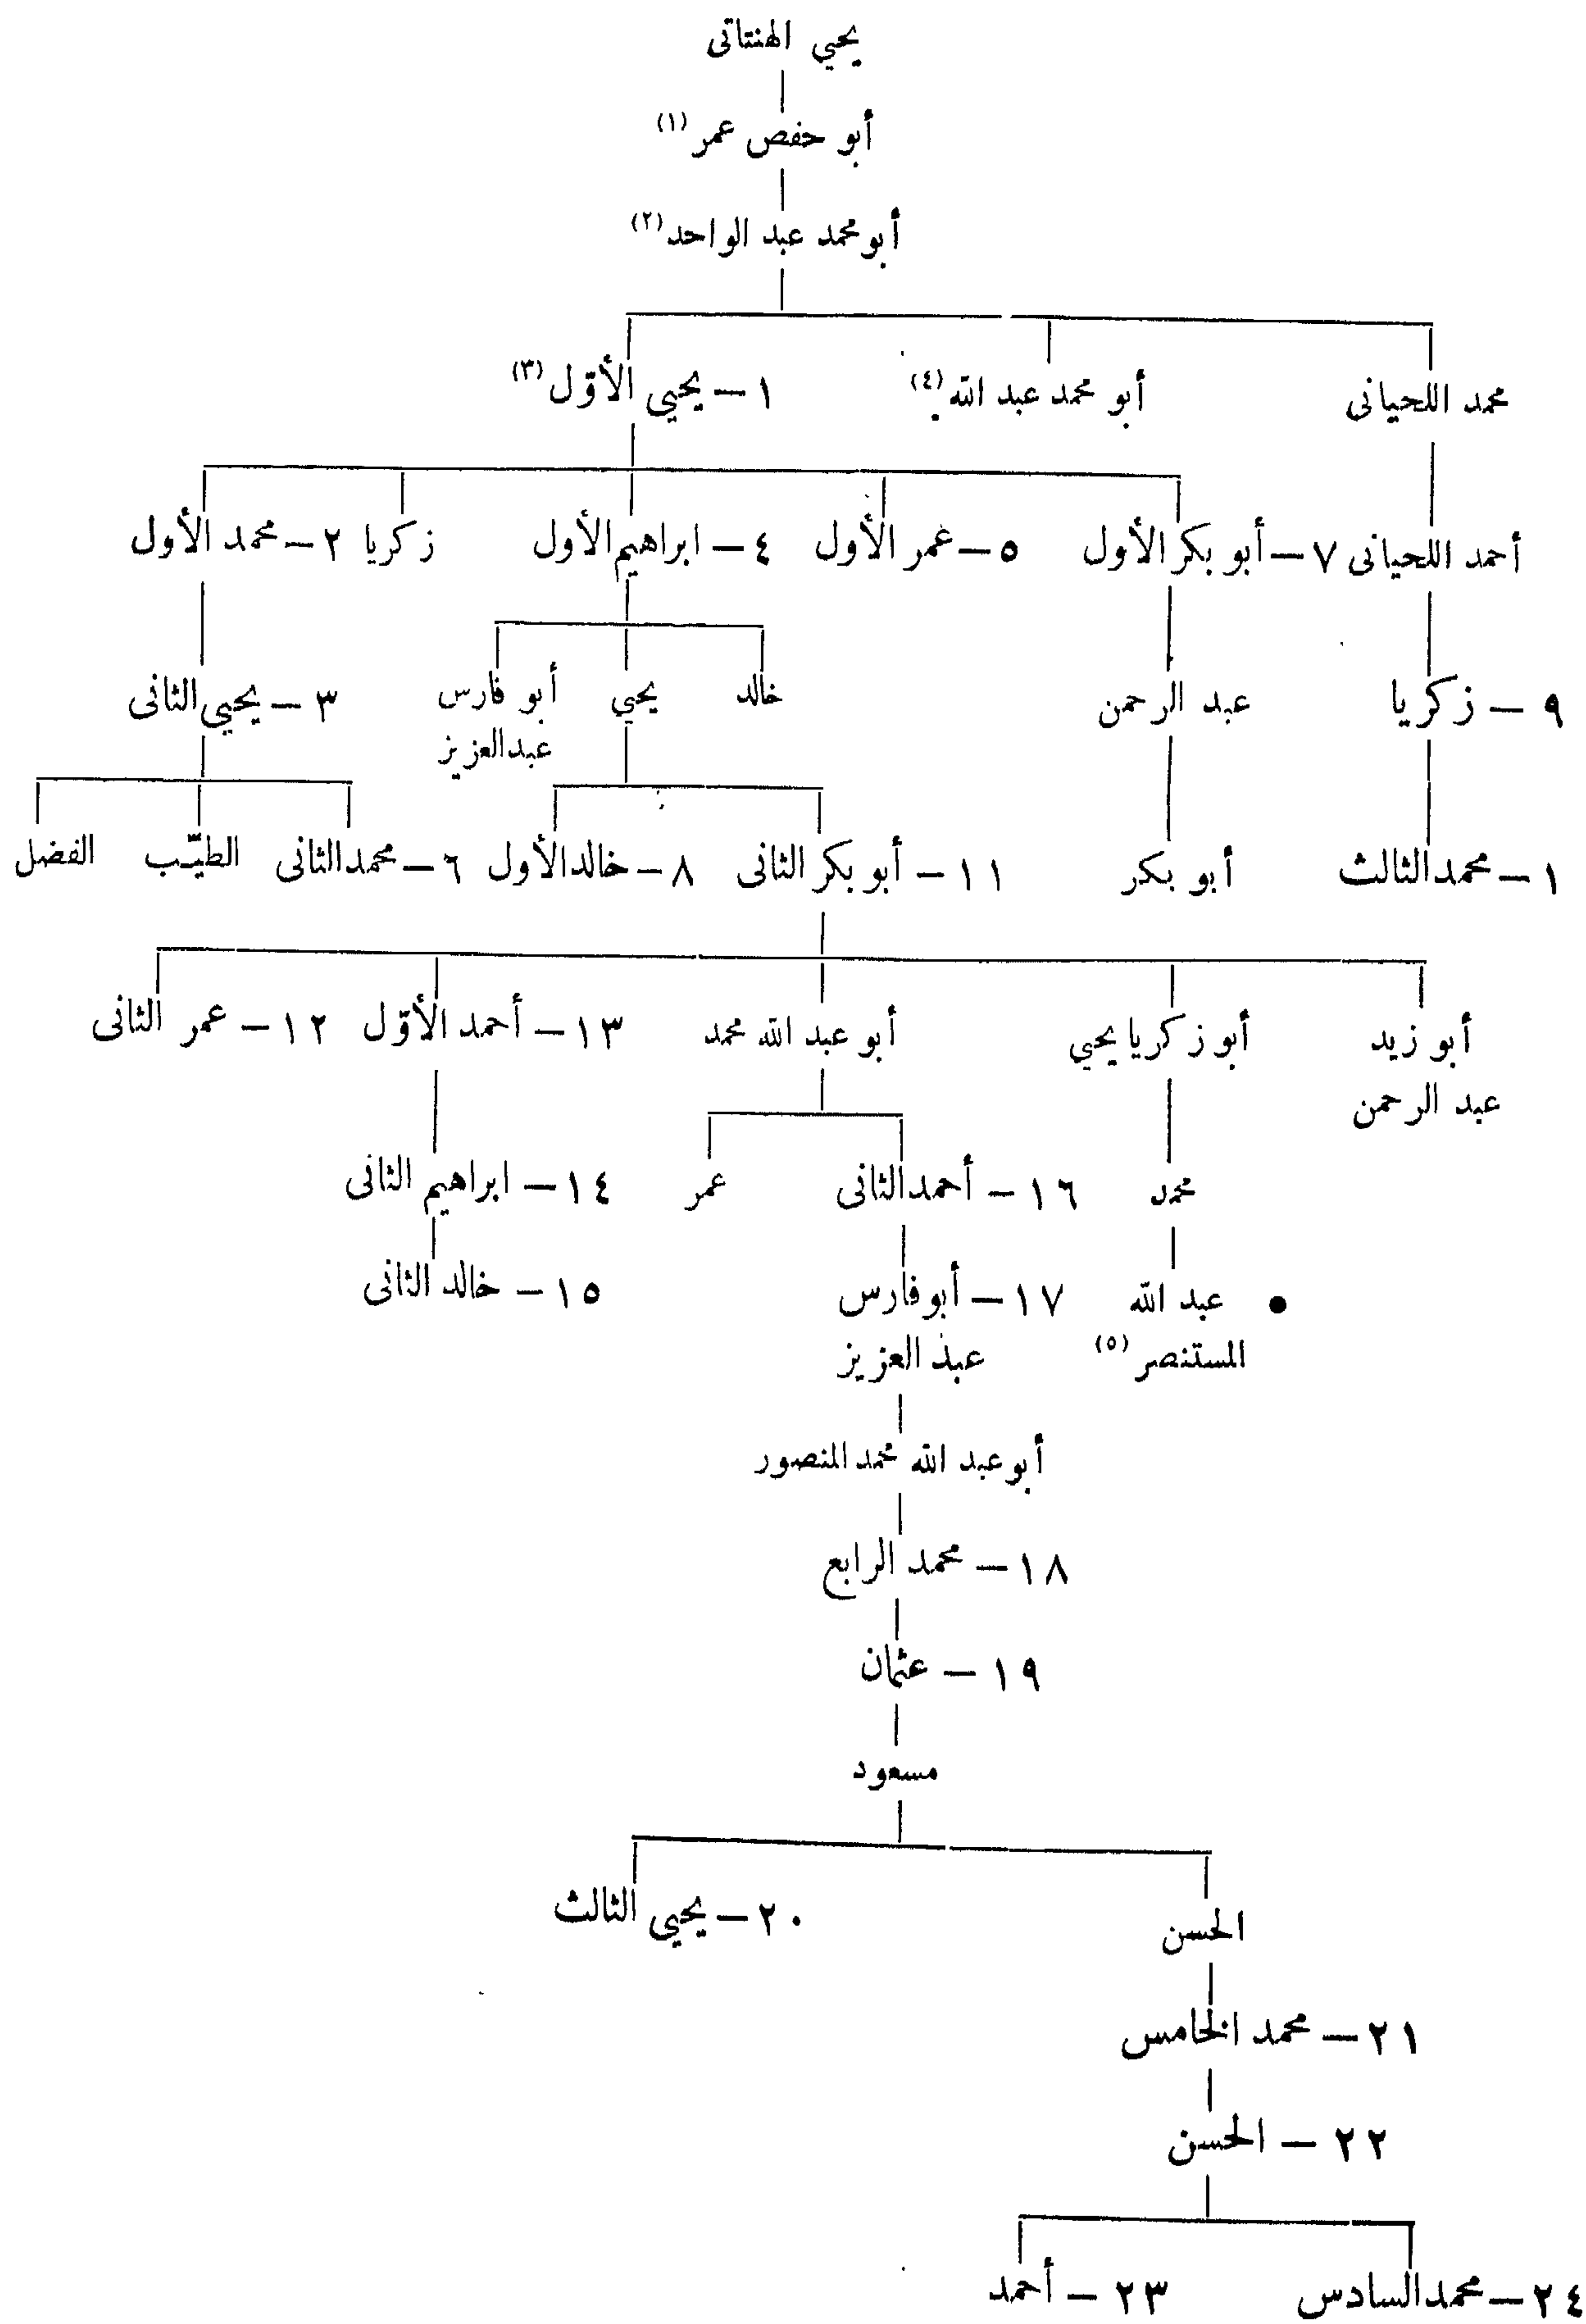 يحيي الهنتاتى
أبو حفص عمر (١)
أبو محمد عبد الواحد (٢)
محمد اللحيانى
أبو محمد عبد الله (٤)
١ – يحيي الأوّل (٣)
أحمد اللحيانى
٧ – أبو بكر الأول
٥ – عمر الأول
٤ – ابراهيم الأول
زكريا
٢ – محمد الأول
٩ – زكريا
عبد الرحمن
خالد
يحيي
أبو فارس
عبد العزيز
٣ – يحيي الثانى
١ – محمد الثالث
أبو بكر
١١ – أبو بكر الثانى
٨ – خالد الأول
٦ – محمد الثانى
الطيّب
الفضل
أبو زيد
عبد الرحمن
أبو زكريا يحيي
أبو عبد الله محمد
١٣ – أحمد الأوّل
١٢ – عمر الثانى
محمد
١٦ – أحمد الثانى
عمر
١٤ – ابراهيم الثانى
● عبد الله
المستنصر (٥)
١٧ – أبو فارس
عبد العزيز
١٥ – خالد الثانى
أبو عبد الله محمد المنصور
١٨ – محمد الرابع
١٩ – عثمان
مسعود
الحسن
٢٠ – يحيي الثالث
٢١ – محمد الخامس
٢٢ – الحسن
٢٤ – محمد السادس
٢٣ – أحمد